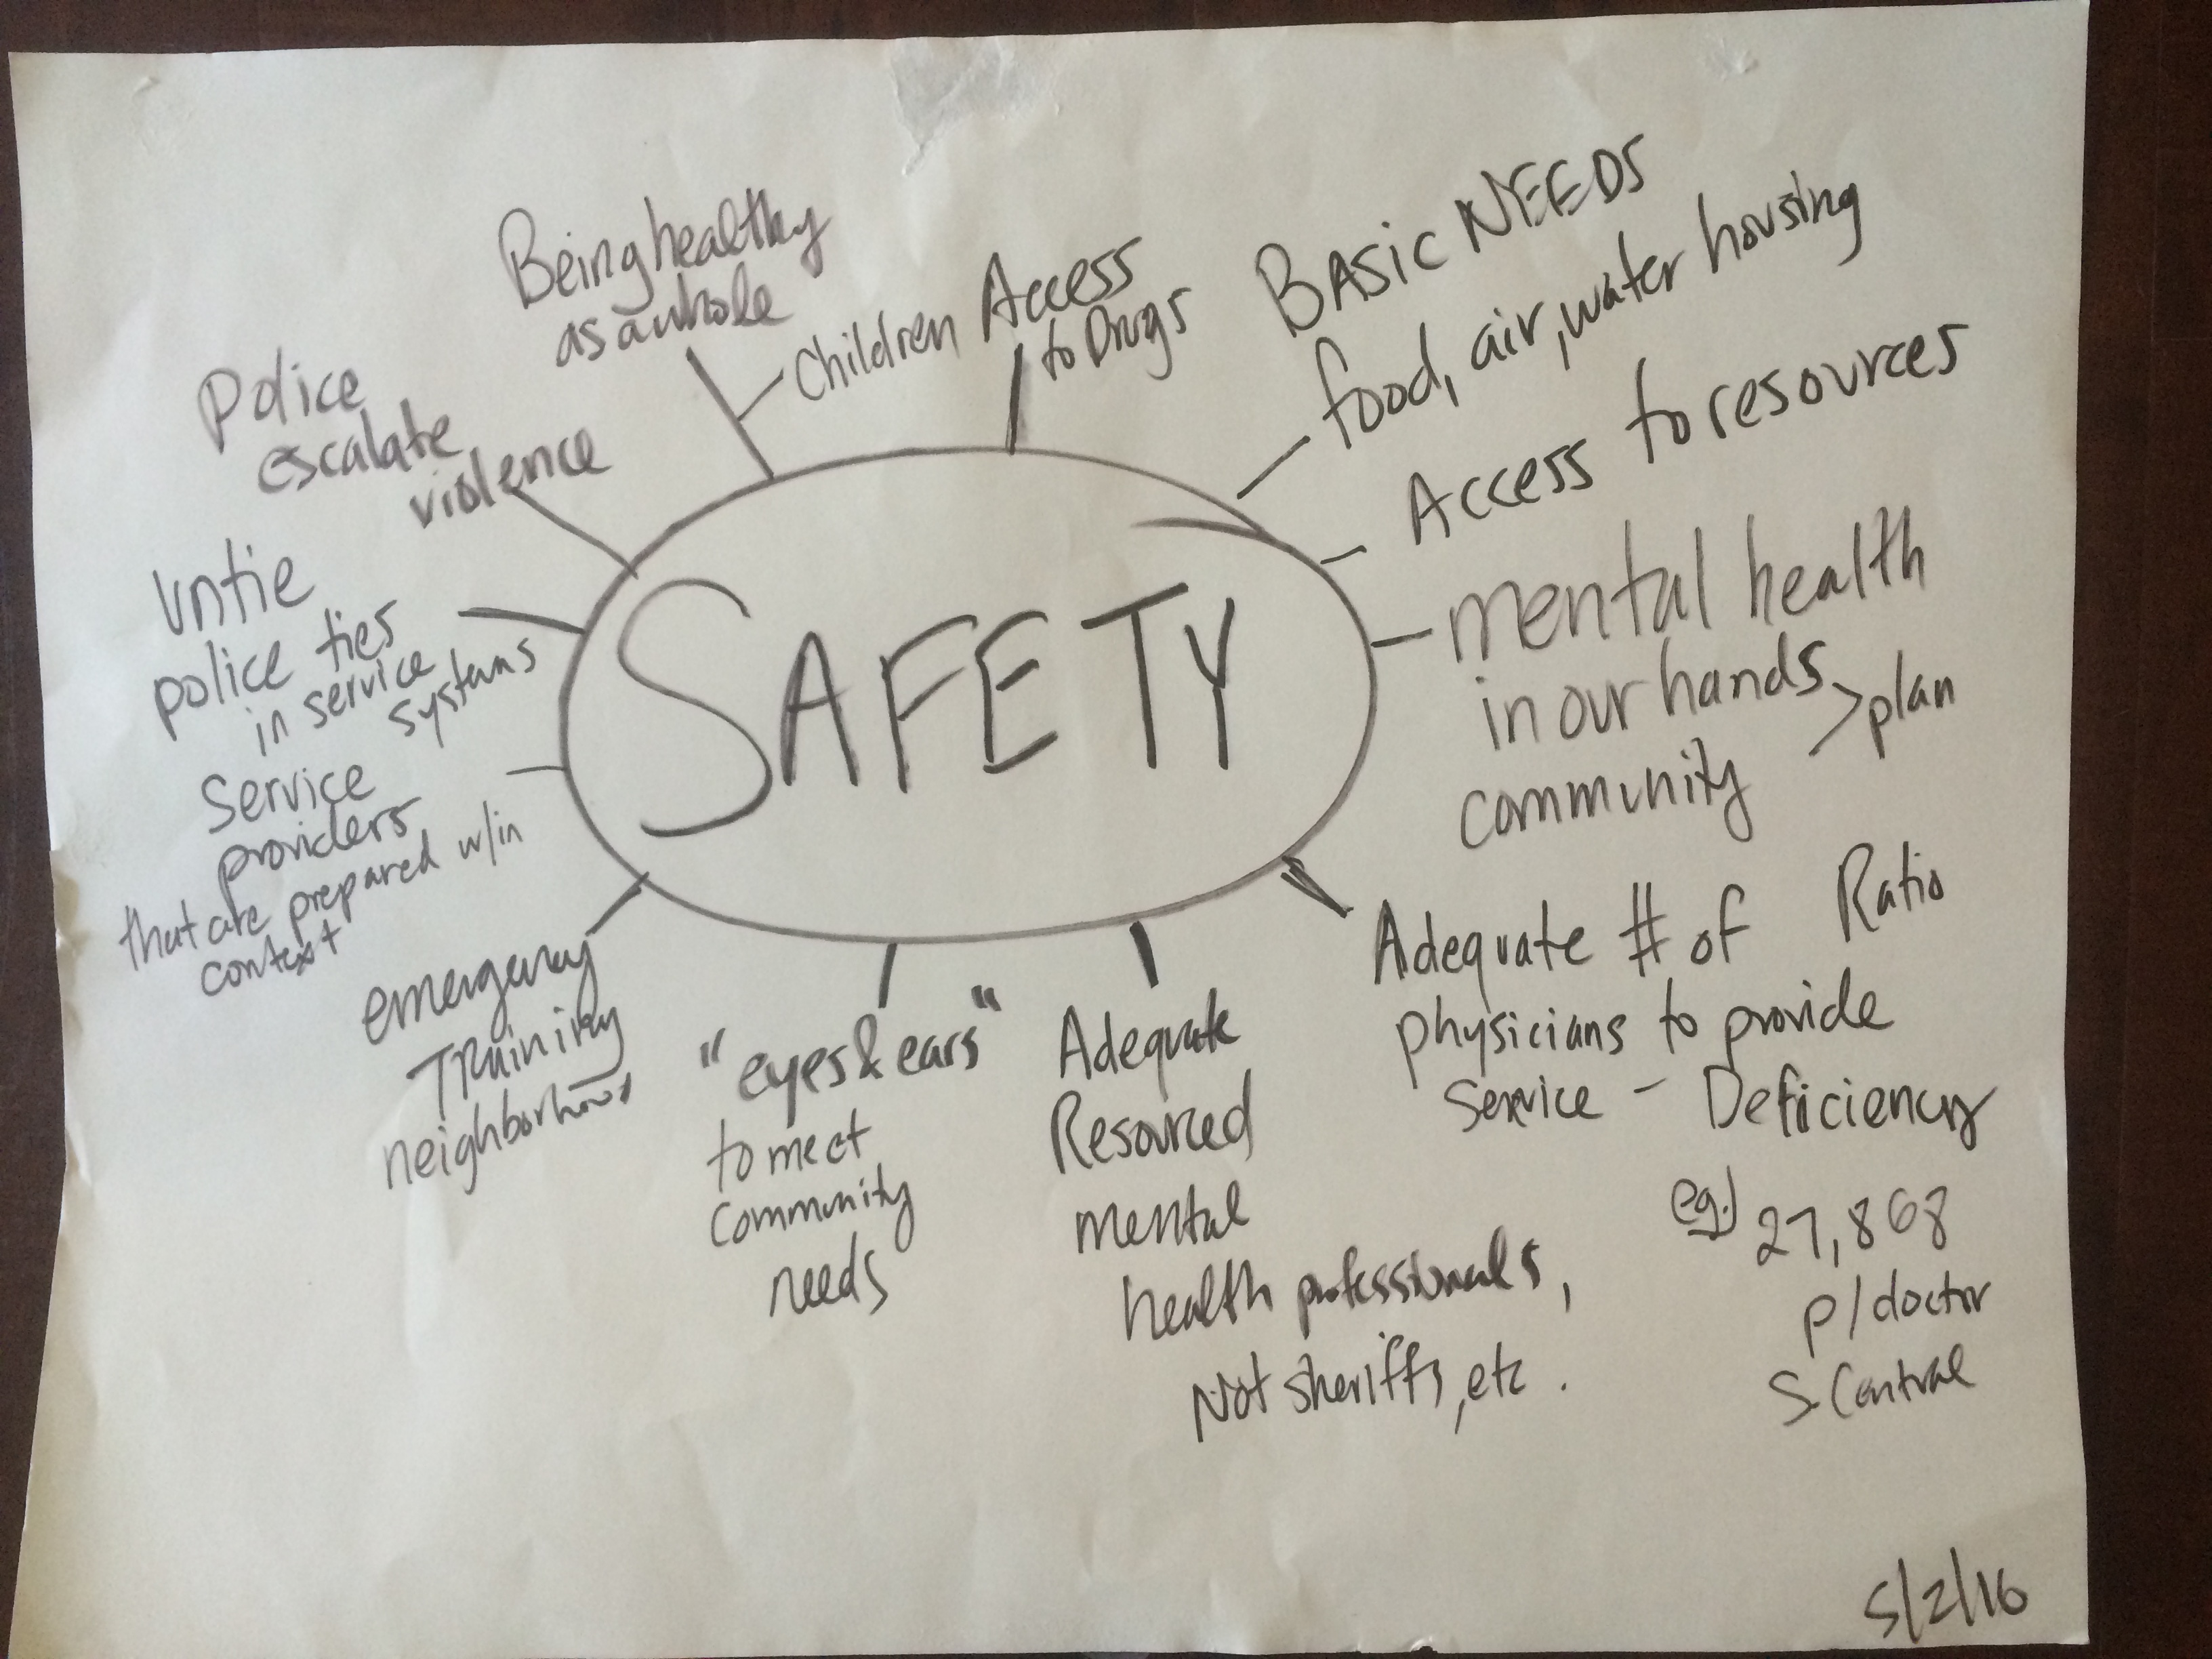 SAFETY
Being healthy
as a whole
Children
Access
to Drugs
BASIC NEEDS
food, air, water housing
Access to resources
mental health
in our hands
community
>plan
Adequate # of
Ratio
physicians to provide
Service - Deficiency
eg.) 27,868
p/doctor
S. Central
Adequate
Resourced
mental
health professionals,
Not sheriffs, etc.
"eyes & ears"
to meet
community
needs
emergency
Training
neighborhood
Service
providers
that are prepared w/in
context
Untie
police ties
in service
systems
Police
escalate
violence
5/2/16